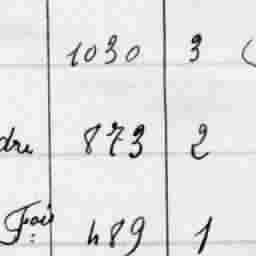 1030 3
dre 873 2
Fois 489 1